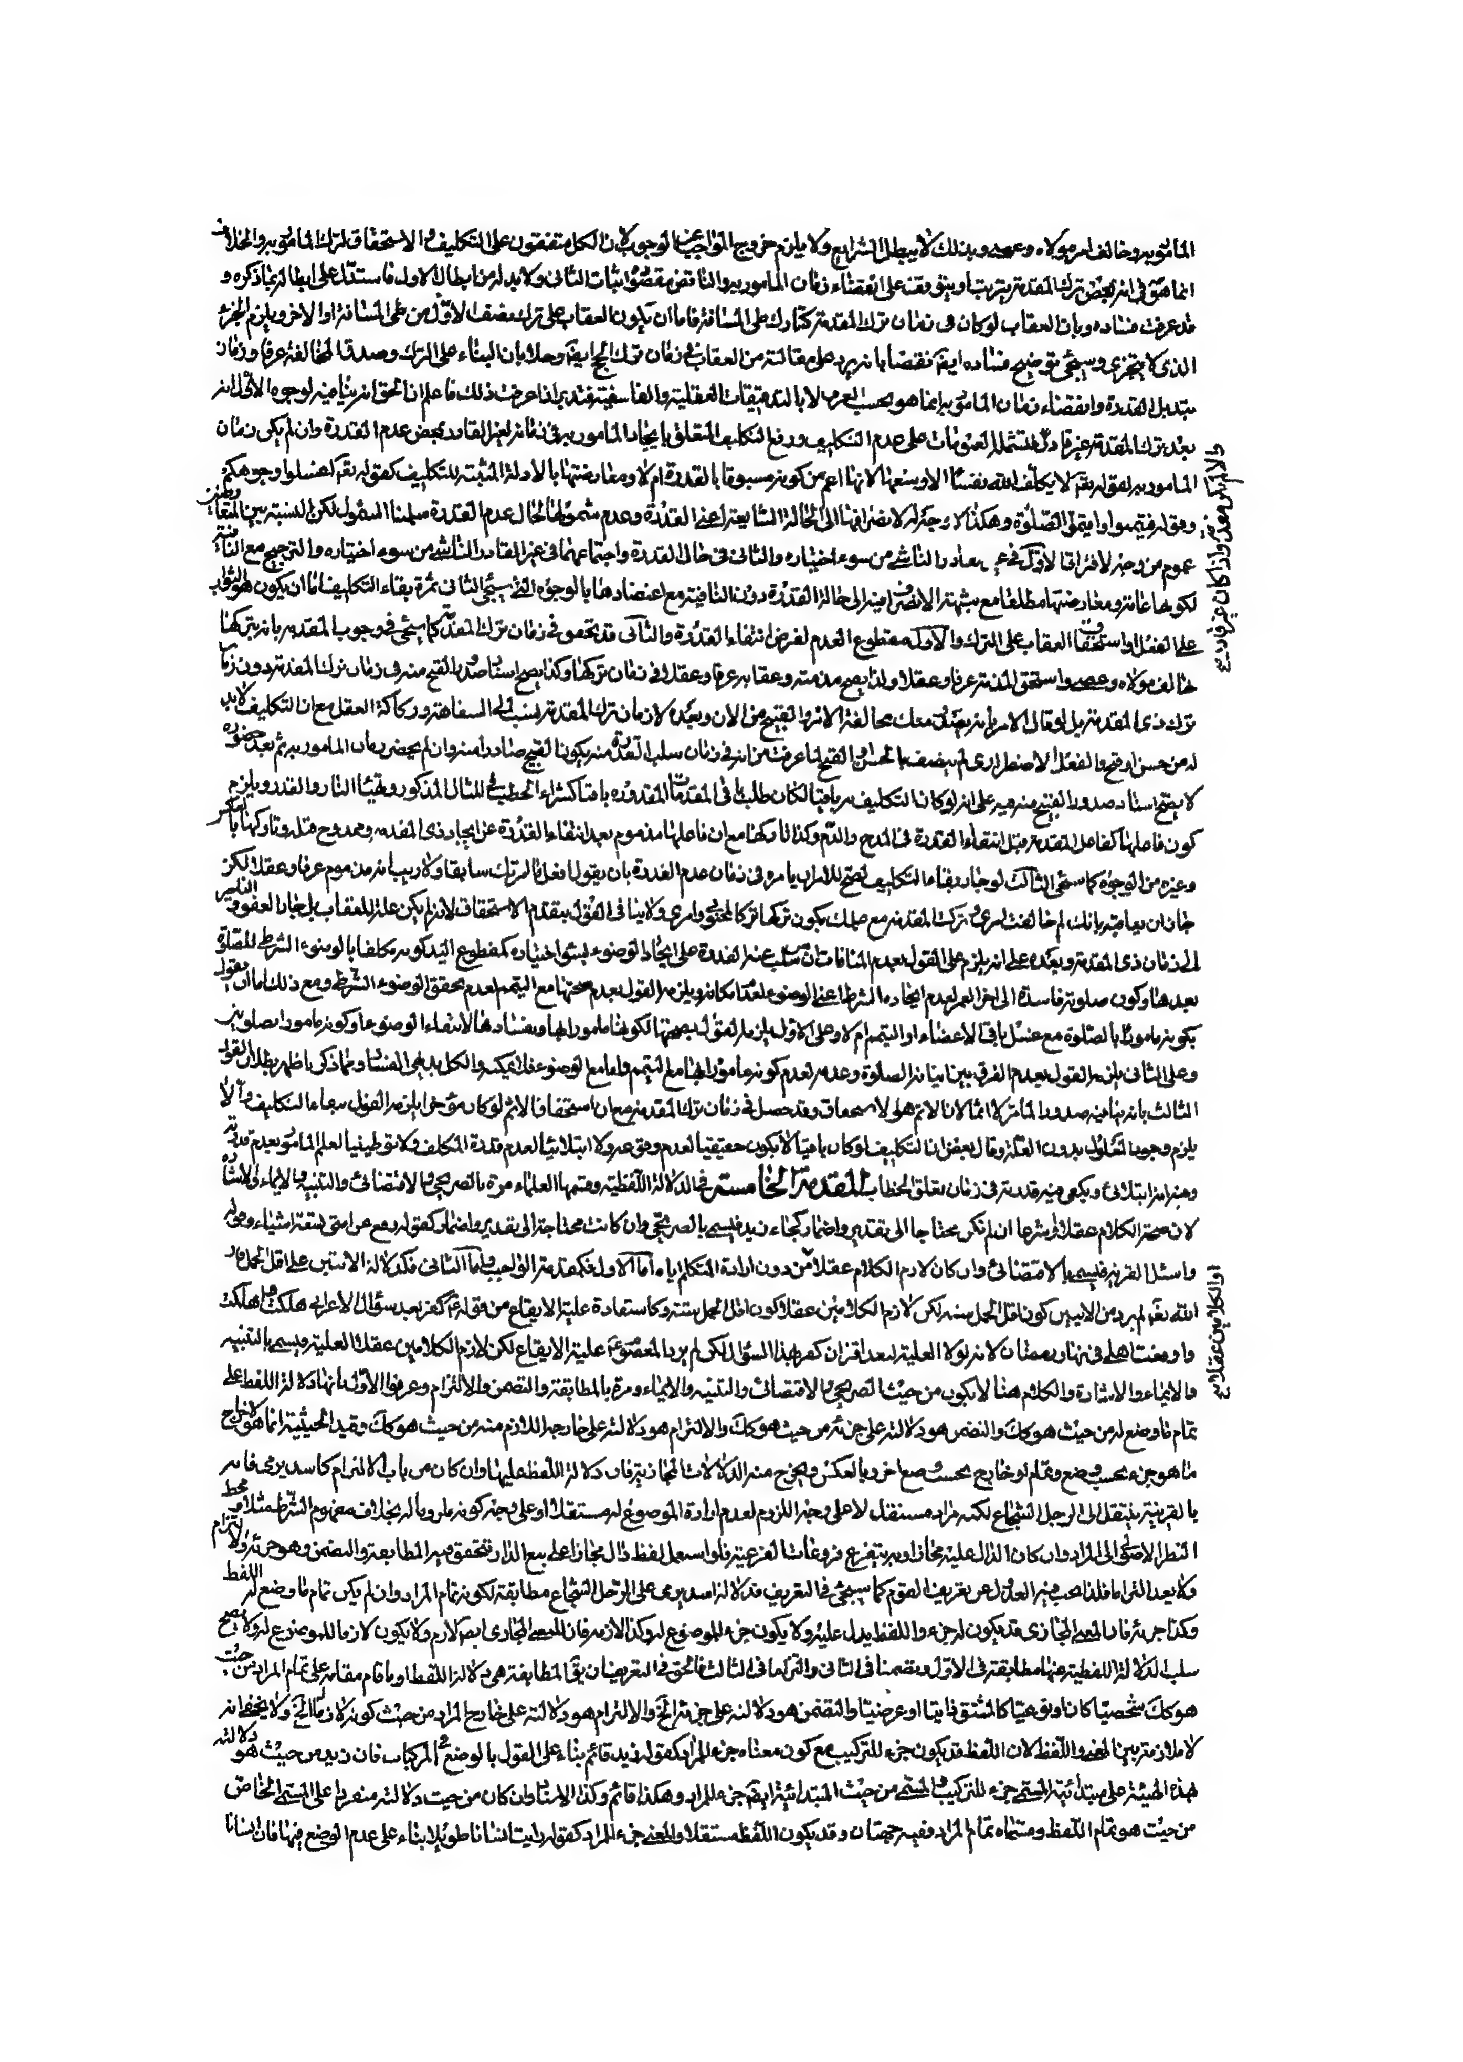 المأمور به وخالف امر مولاه وعصى وبذلك لا يبطل الشرايع ولا يلزم خروج الواجب عن الوجوب لان الكل متفقون على التكليف والاستحقاق لترك المأمور به والخلاف
انما هو في انه بمحض ترك المقدمة يترتب او يتوقف على انقضاء زمان المأمور به والناقض مقصوده اثبات الثاني ولا بد له من ابطال الاول فاستدل على ابطاله بما ذكره و
قد عرفت فساده وبان العقاب لو كان في زمان ترك المقدمة كتارك طي المسافة فاما ان يكون العقاب على ترك نصف الاول من طي المسافة او الاخر ويلزم الجزء
الذي لا يتجزى وسيجئ توضيح فساده ايضا نقضا بانه يرد على مقالته من العقاب في زمان ترك الحج ايضا وحلا بان البناء على الترك وصدق المخالفة عرفا وزمان
تبدل القدرة وانقضاء زمان المأمور به انما هو بحسب العرف لا بالتدقيقات العقلية والفلسفية فتدبر اذا عرفت ذلك فاعلم ان الحق انه ينافيه لوجوه الاول انه
بعد ترك المقدمة غير قادر فتشمله العمومات على عدم التكليف ورفع التكليف المتعلق بايجاد المأمور به في زمانه لغير القادر بمحض عدم القدرة وان لم يكن زمان
المأمور به لقوله تعالى لا يكلف الله نفسا الا وسعها لانها اعم من كونه مسبوقا بالقدرة ام لا ومعارضتها بالادلة المثبتة للتكليف كقوله تعالى اغسلوا وجوهكم
وقوله فتيمموا واقيموا الصلوة وهكذا لا وجه له لانصرافها الى الحالة السابقة اعني القدرة وعدم شمولها لحال عدم القدرة سلمنا الشمول لكن النسبة بين المتعارضين
عموم من وجه لافتراق الاول في غير القادر الناشي من سوء اختياره والثاني في حال القدرة واجتماعهما في غير القادر الناشي من سوء اختياره والترجيح مع النافية
لكونها عامة ومعارضتها مطلقا مع شبهة الانصراف فيه الى حالة القدرة دون النافية مع اعتضادها بالوجوه التي سيجئ الثاني ثمرة بقاء التكليف اما ان يكون هو الثواب
على الفعل او استحقاق العقاب على الترك والاول مقطوع العدم لفرض انتفاء القدرة والثاني قد تحقق في زمان ترك المقدمة كما سيجئ في وجوب المقدمة بانه بتركها
خالف مولاه وعصى واستحق المذمة عرفا وعقلا ولذا يصح مذمته وعقابه عرفا وعقلا في زمان تركها وكذا يصح اسناد صدور القبح منه في زمان ترك المقدمة دون زمان
ترك ذي المقدمة بل لو قال الامر بانه يصدر منك مخالفة الامر والقبيح من الان وبعده لازمان ترك المقدمة لنسب الى السفاهة وركاكة العقل مع ان التكليف لا بد
له من حسن او قبح والفعل الاضطراري لم يتصف بالحسن والقبح لما عرفت من انه في زمان سلب القدرة منه يكون القبيح صادرا منه وان لم يحضر زمان المأمور به ثم بعد حضوره
لا يصح اسناد صدور القبيح منه فيه على انه لو كان التكليف به باقيا لكان طلب ما في المقدمات المقدورة باقيا كشراء الحطب في المثال المذكور وتهيئا النار والقدر ويلزم
كون فاعلها كفاعل المقدمة قبل انتفاء القدرة في المدح والذم وكذا تاركها مع ان فاعلها مذموم بعد انتفاء القدرة عن ايجاد ذي المقدمة وممدوح قبله وتاركها بالعكس
وغيره من الوجوه كما سيجئ الثالث لو جاز بقاء التكليف لصح للامر ان يأمر في زمان عدم القدرة بان يقول افعل ما تركت سابقا ولا ريب بانه مذموم عرفا وعقلا لكن
جاز ان يعاتبه بانك لم خالفت امري وتركت المقدمة مع علمك بكون تركها تركا لمحبوبي وامري ولا ينافي القول بتقدم الاستحقاق لانه لم يكن علة للعقاب بل جاز العفو والتأخير
الى زمان ذي المقدمة وبعده على انه يلزم على القول بعدم المنافات ان من سلب عنه القدرة على ايجاد الوضوء بسوء اختياره كمقطوع اليد كونه مكلفا بالوضوء الشرط للصلوة
بعدها وكون صلوته فاسدة الى اخر العمر لعدم ايجاده الشرط اعني الوضوء لعدم امكانه ويلزمه القول بعدم صحتها مع التيمم لعدم تحقق الوضوء الشرط ومع ذلك اما ان يقول
بكونه مأمورا بالصلوة مع غسل باقي الاعضاء او التيمم ام لا وعلى الاول يلزمه القول بصحتها لكونها مأمورا بها وبفسادها لانتفاء الوضوء او كونه مأمورا بصلوتين
وعلى الثاني يلزمه القول بعدم الفرق بين اتيانه الصلوة وعدمه لعدم كونه مأمورا بها مع التيمم واما مع الوضوء فلا يمكنه والكل بديهي الفساد ومما ذكر ما ظهر بطلان القول
الثالث بانه ينافيه صدور المأثر لا اثما لان الاثم هو الاستحقاق وقد حصل في زمان ترك المقدمة مع ان استحقاق الاثم لو كان مؤخرا يلزمه القول ببقاء التكليف والا
يلزم وجود المعلول بدون العلة وقال بعض ان التكليف لو كان باقيا لا يكون حقيقيا لعدم وقوعه ولا ابتلائيا لعدم قدرة المكلف ولا توطينيا لعلم المأمور بعدم قدرته
وفيه انه ابتلائي ويكفي فيه قدرته في زمان تعلق الخطاب المقدمة الخامسة في الدلالة اللفظية وقسمها العلماء مرة بالصريحي والاقتضائي والتنبيه والايماء والاشارة
لان صحة الكلام عقلا او شرعا ان لم تكن محتاجا الى تقدير واضمار كجاء زيد فيسمى بالصريحي وان كانت محتاجة الى تقدير واضمار كقوله رفع عن امتي تسعة اشياء وقوله
واسئل القرية فيسمى بالاقتضائي وان كان لازم الكلام عقلا من دون ارادة المتكلم اياه اما الاول فكمقدمة الواجب واما الثاني فكدلالة الايتين على اقل الحمل فان
الله تعالى لم يرد من الايتين كون اقل الحمل ستة لكن لازم الكلامين عقلا كون اقل الحمل ستة وكاستفادة علية الايقاع من قوله كفر بعد سؤال الاعرابي هلكت واهلكت
وواقعت اهلي في نهار رمضان لانه لولا العلية لبعد اقتران كفر بهذا السؤال لكن لم يرد المعصوم علية الايقاع لكن لازم الكلامين عقلا العلية فيسمى بالتنبيه
والايماء والاشارة والكلام هنا لا يكون من حيث الصريحي والاقتضائي والتنبيه والايماء ومرة بالمطابقة والتضمن والالتزام وعرفوا الاول بانها دلالة اللفظ على
تمام ما وضع له من حيث هو كك والتضمن هو دلالته على جزئه من حيث هو كك والالتزام هو دلالته على خارجه اللازم منه من حيث هو كك وقيد الحيثية انما هو لاخراج
ما هو جزء بحسب وضع وتمام او خارج بحسب وضع اخر وبالعكس ويخرج منه الدلالات المجازية فان دلالة اللفظ عليها وان كان من باب الالتزام كاسد يرمي فانه
بالقرينة ينتقل الى الرجل الشجاع لكنه مراد مستقل لا على وجه اللزوم لعدم ارادة الموضوع له مستقلا او على وجه كونه ملزوما له بخلاف مفهوم الشرط مثلا ومحط
النظر الاصلي الى المراد وان كان الدال عليه مجازا وبه يتفرع فروعات الفرعية فلو استعمل لفظ دال مجازا على بيع الدار فتحقق فيه المطابقة والتضمن وهو جزئه والالتزام
ولا يعد التزاما فلذا يجب فيه العدول عن تعريف القوم كما سيجئ في التعريف فدلالة اسد يرمي على الرجل الشجاع مطابقة لكونه تمام المراد وان لم يكن تمام ما وضع له اللفظ
وكذا جزئه فان المعنى المجازي قد يكون له جزء واللفظ يدل عليه ولا يكون جزء للموضوع له وكذا لازمه فان للمعنى المجازي ايضا لازم ولا يكون لازما للموضوع له ولا يصح
سلب الدلالة اللفظية عنها مطابقة في الاول وتضمنا في الثاني والتزاما في الثالث فالحق في التعريف ان يقال المطابقة هي دلالة اللفظ او ما قام مقامه على تمام المراد من حيث
هو كك شخصيا كان او نوعيا كالمشتق ذاتيا او عرضيا والتضمن هو دلالته على جزئه الخ والالتزام هو دلالته على خارج المراد من حيث كونه لازما الخ ولا يخفى انه
لا ملازمة بين المعنى واللفظ لان اللفظ قد يكون جزء للتركيب مع كون معناه جزء للمراد كقوله زيد قائم بناء على القول بالوضع في المركبات فان زيد من حيث هو دلالته
هذه الهيئة على مبتدائية المسمى جزء للتركيب والمسمى من حيث المبتدائية ايضا جزء للمراد وهكذا قائم وكذا الاسناد وان كان من حيث دلالته منفردا على المسمى الخاص
من حيث هو تمام اللفظ ومسماه تمام المراد ففيه جهتان وقد يكون اللفظ مستقلا والمعنى جزء للمراد كقوله رايت انسانا طويلا بناء على عدم الوضع فيها فان انسانا